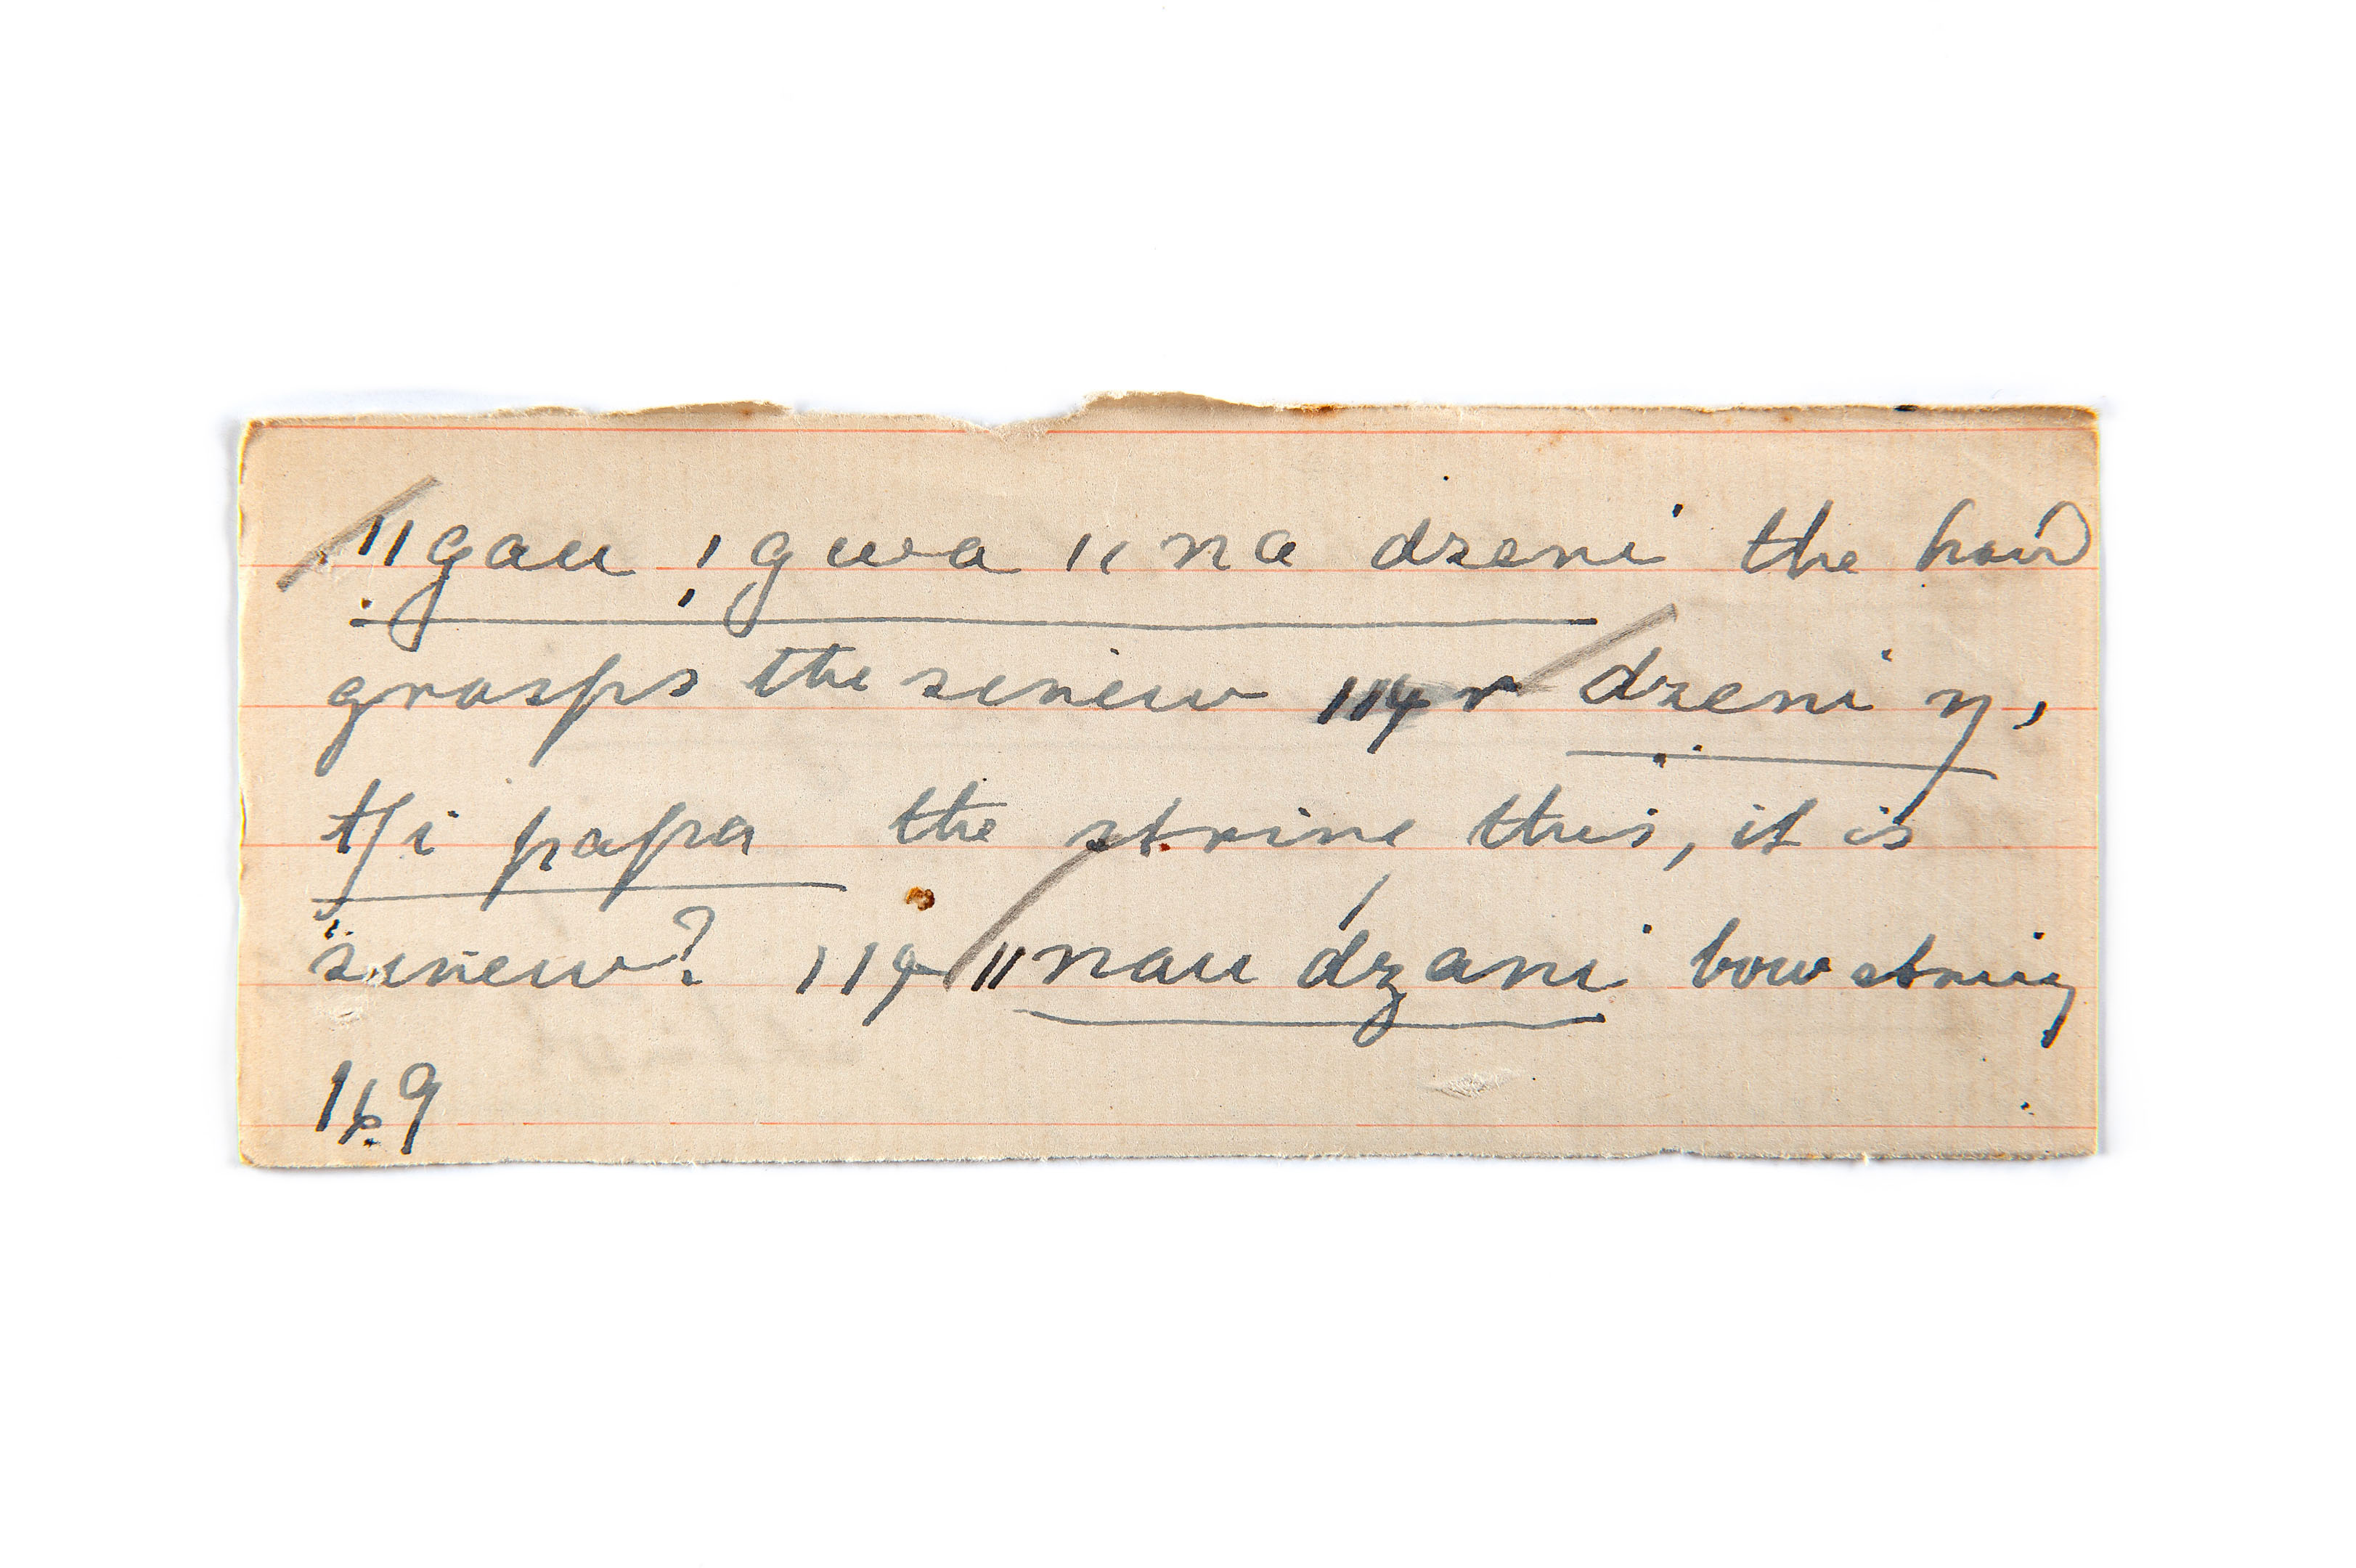 ǁgau ǃgwa ǁna dzeni the hand
grasps the sinew 114 r dzeni ŋ,
tʃi papa the strine this, it is
sinew? 119 ǁnau dzani bow string
119